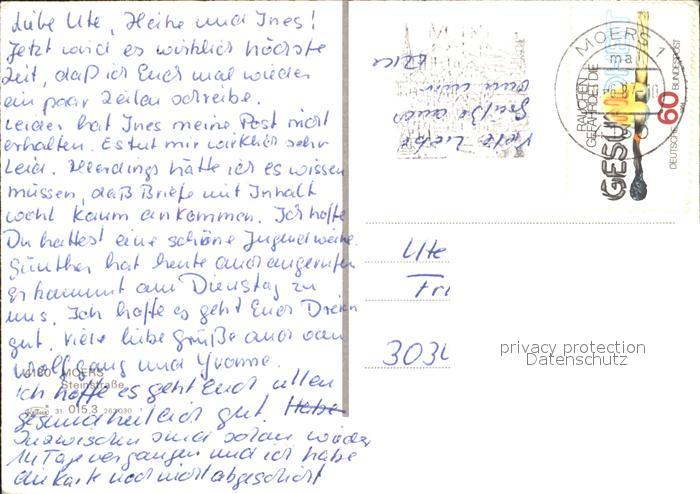 Liebe Ute, Heike und Ines!
Jetzt wird es wirklich höchste
Zeit, daß ich Euch mal wieder
ein paar Zeilen schreibe.
Leider hat Ines meine Post nicht
erhalten. Es tut mir wirklich sehr
Leid. Allerdings hätte ich es wissen
müssen, daß Briefe mit Inhalt
wohl kaum ankommen. Ich hoffe
Du hattest eine schöne Jugendweihe.
Günther hat heute auch angerufen
er kommt am Dienstag zu
uns. Ich hoffe es geht Euch Dreien
gut. Viele liebe Grüße auch von
Wolfgang und Yvonne.
MOERS
Steinstraße
Ich hoffe es geht Euch allen
31 015.3
gesundheitlich gut. Habe
Inzwischen sind schon wieder
14 Tage vergangen und ich habe
die Karte noch nicht abgeschickt
Viele liebe
Grüße auch
MOERS 1
ma
RAUCHEN
GEFÄHRDET DIE
GESUNDHEIT
60
DEUTSCHE BUNDESPOST
Ute
Fri
303
privacy protection
Datenschutz